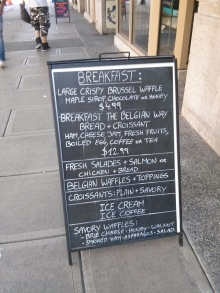 BREAKFAST:
LARGE CRISPY BRUSSEL WAFFLE
MAPLE SYRUP, CHOCOLATE OR HONEY
$4.99
BREAKFAST THE BELGIAN WAY
BREAD + CROISSANT
HAM, CHEESE, JAM, FRESH FRUITS,
BOILED EGG, COFFEE OR TEA
$12.99
FRESH SALADS + SALMON OR
CHICKEN + BREAD
BELGIAN WAFFLES + TOPPINGS
CROISSANTS: PLAIN + SAVORY
ICE CREAM
ICE COFFEE
SAVORY WAFFLES:
- BRIE CHEESE - HONEY - WALNUT
- SMOKED HAM - ASPARAGUS - SALAD